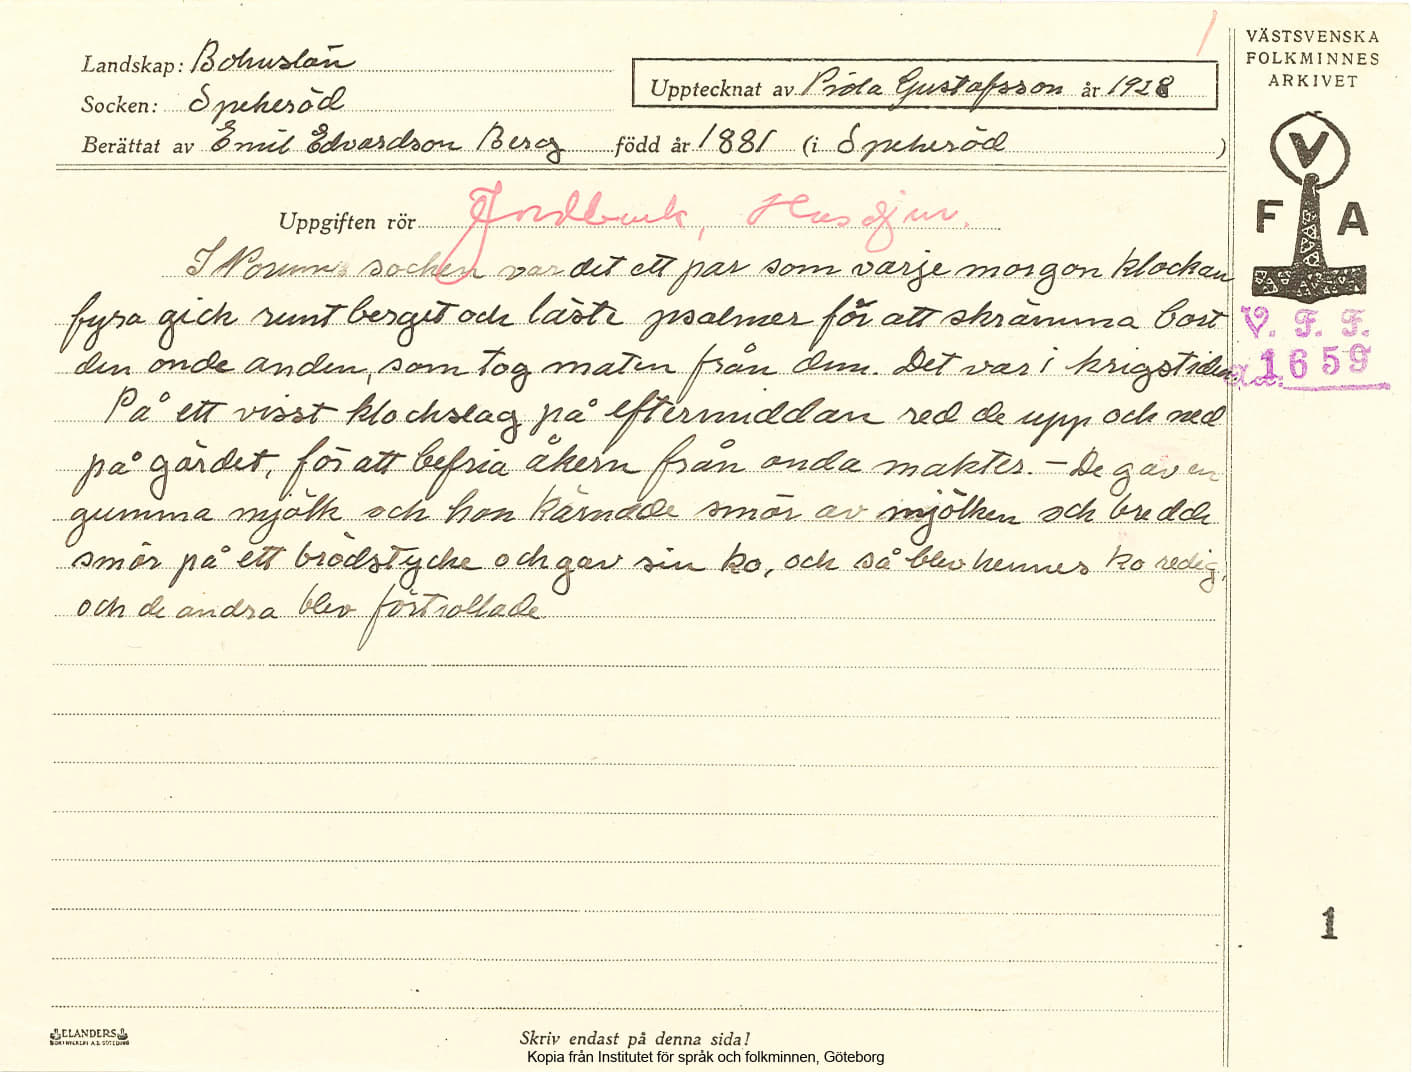 Landskap: Bohuslän
Socken: Spekeröd
Upptecknat av Frida Gustafsson år 1928
Berättat av Emil Edvardson Berg född år 1881 (i Spekeröd )
Uppgiften rör Jordbruk, Husdjur.
I Norums socken var det ett par som varje morgon klockan
fyra gick runt berget och läste psalmer för att skrämma bort
den onde anden, som tog maten från dem. Det var i krigstiden
På ett visst klockslag på eftermiddan red de upp och ned
på gärdet, för att befria åkern från onda makter. – De gav en
gumma mjölk och hon kärnade smör av mjölken och bredde
smör på ett brödstycke och gav sin ko, och så blev hennes ko redig,
och de andra blev förtrollade
VÄSTSVENSKA
FOLKMINNES
ARKIVET
V
F A
V. F. F.
1659
1
ELANDERS
Skriv endast på denna sida!
Kopia från Institutet för språk och folkminnen, Göteborg